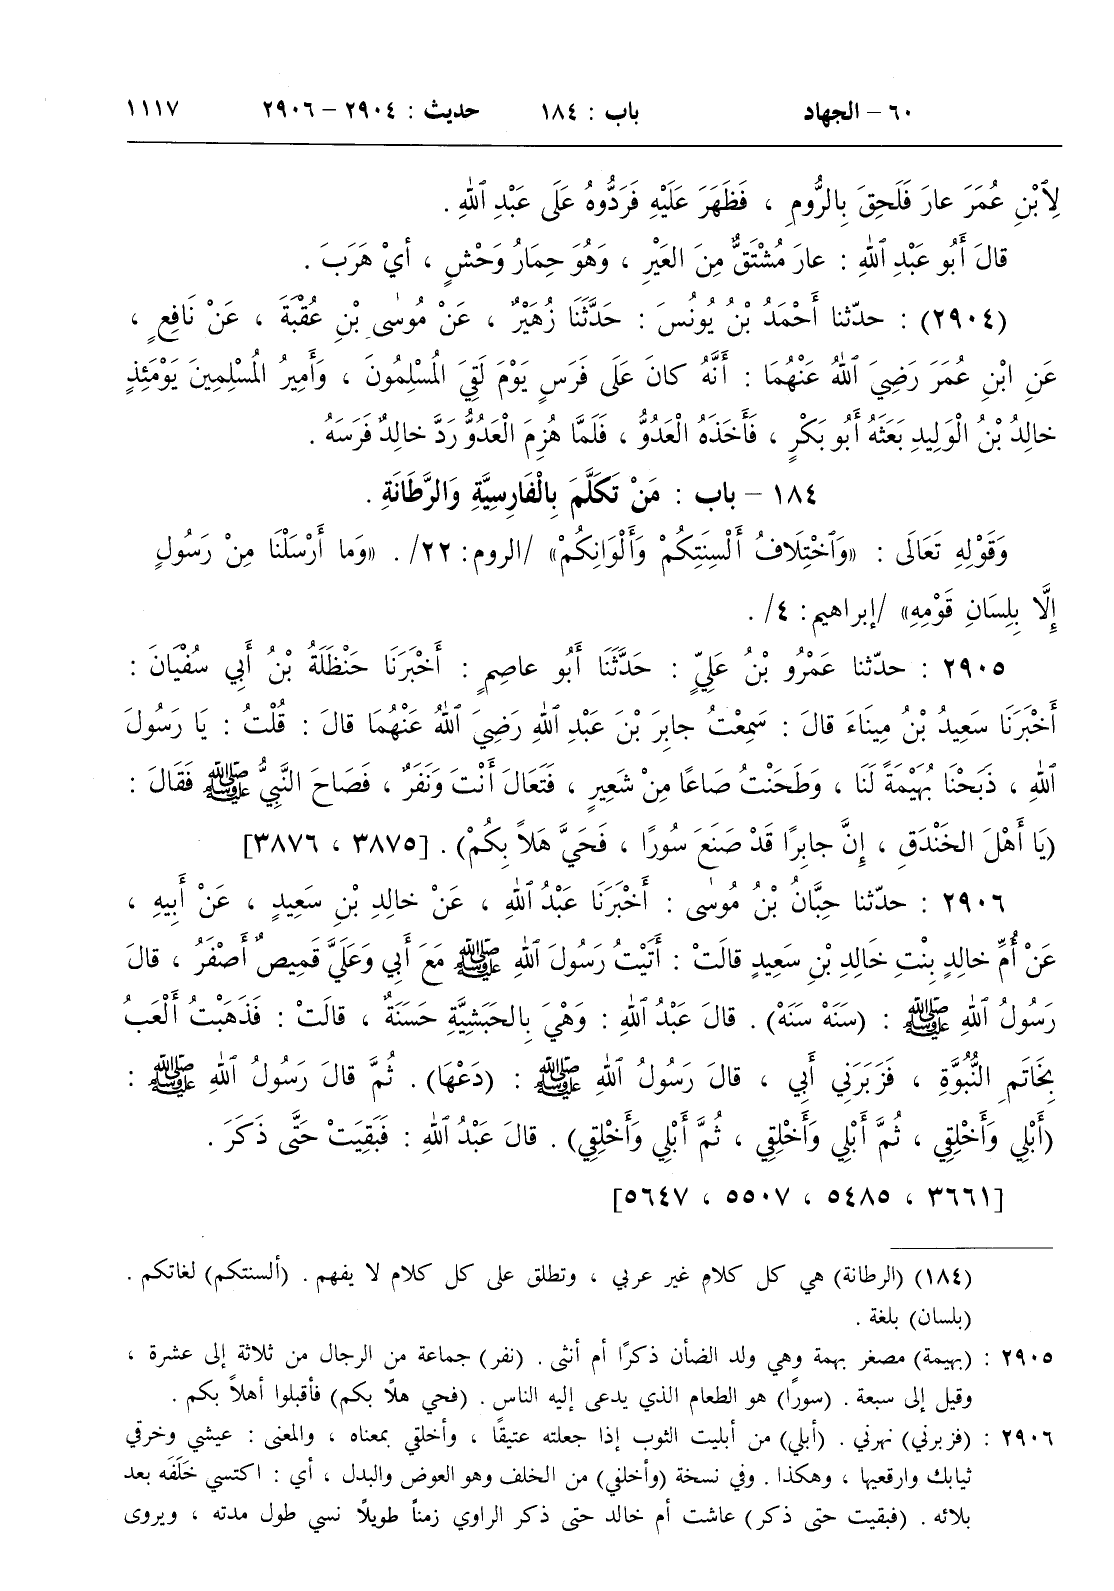 ٦٠ – الجهاد باب : ١٨٤ حديث : ٢٩٠٤ – ٢٩٠٦ ١١١٧
لِٱبْنِ عُمَرَ عارَ فَلَحِقَ بِالرُّومِ ، فَظَهَرَ عَلَيْهِ فَرَدُّوهُ عَلَى عَبْدِ ٱللهِ .
قالَ أَبُو عَبْدِ ٱللهِ : عارَ مُشْتَقٌّ مِنَ العَيْرِ ، وَهُوَ حِمَارُ وَحْشٍ ، أيْ هَرَبَ .
(٢٩٠٤) : حدّثنا أَحْمَدُ بْنُ يُونُسَ : حَدَّثَنَا زُهَيْرٌ ، عَنْ مُوسٰى بْنِ عُقْبَةَ ، عَنْ نَافِعٍ ،
عَنِ ابْنِ عُمَرَ رَضِيَ ٱللهُ عَنْهُمَا : أَنَّهُ كانَ عَلَى فَرَسٍ يَوْمَ لَقِيَ الْمُسْلِمُونَ ، وَأَمِيرُ الْمُسْلِمِينَ يَوْمَئِذٍ
خالِدُ بْنُ الْوَلِيدِ بَعَثَهُ أَبُو بَكْرٍ ، فَأَخَذَهُ الْعَدُوُّ ، فَلَمَّا هُزِمَ الْعَدُوُّ رَدَّ خالِدٌ فَرَسَهُ .
١٨٤ – باب : مَنْ تَكَلَّمَ بِالْفَارِسِيَّةِ وَالرَّطَانَةِ .
وَقَوْلِهِ تَعَالَى : «وَٱخْتِلَافُ أَلْسِنَتِكُمْ وَأَلْوَانِكُمْ» /الروم: ٢٢/. «وَما أَرْسَلْنَا مِنْ رَسُولٍ
إِلَّا بِلِسَانِ قَوْمِهِ» /إبراهيم: ٤/ .
٢٩٠٥ : حدّثنا عَمْرُو بْنُ عَلِيٍّ : حَدَّثَنَا أَبُو عاصِمٍ : أَخْبَرَنَا حَنْظَلَةُ بْنُ أَبِي سُفْيَانَ :
أَخْبَرَنَا سَعِيدُ بْنُ مِينَاءَ قالَ : سَمِعْتُ جابِرَ بْنَ عَبْدِ ٱللهِ رَضِيَ ٱللهُ عَنْهُمَا قالَ : قُلْتُ : يَا رَسُولَ
ٱللهِ ، ذَبَحْنَا بُهَيْمَةً لَنَا ، وَطَحَنْتُ صَاعًا مِنْ شَعِيرٍ ، فَتَعَالَ أَنْتَ وَنَفَرٌ ، فَصَاحَ النَّبِيُّ ﷺ فَقَالَ :
(يَا أَهْلَ الخَنْدَقِ ، إِنَّ جابِرًا قَدْ صَنَعَ سُورًا ، فَحَيَّ هَلاً بِكُمْ) . [٣٨٧٥ ، ٣٨٧٦]
٢٩٠٦ : حدّثنا حِبَّانُ بْنُ مُوسٰى : أَخْبَرَنَا عَبْدُ ٱللهِ ، عَنْ خالِدِ بْنِ سَعِيدٍ ، عَنْ أَبِيهِ ،
عَنْ أُمِّ خالِدٍ بِنْتِ خالِدِ بْنِ سَعِيدٍ قالَتْ : أَتَيْتُ رَسُولَ ٱللهِ ﷺ مَعَ أَبِي وَعَلَيَّ قَمِيصٌ أَصْفَرُ ، قالَ
رَسُولُ ٱللهِ ﷺ : (سَنَهْ سَنَهْ) . قالَ عَبْدُ ٱللهِ : وَهْيَ بِالحَبَشِيَّةِ حَسَنَةٌ ، قالَتْ : فَذَهَبْتُ أَلْعَبُ
بِخَاتَمِ النُّبُوَّةِ ، فَزَبَرَنِي أَبِي ، قالَ رَسُولُ ٱللهِ ﷺ : (دَعْهَا) . ثُمَّ قالَ رَسُولُ ٱللهِ ﷺ :
(أَبْلِي وَأَخْلِقِي ، ثُمَّ أَبْلِي وَأَخْلِقِي ، ثُمَّ أَبْلِي وَأَخْلِقِي) . قالَ عَبْدُ ٱللهِ : فَبَقِيَتْ حَتَّى ذَكَرَ .
[٣٦٦١ ، ٥٤٨٥ ، ٥٥٠٧ ، ٥٦٤٧]
(١٨٤) (الرطانة) هي كل كلامِ غير عربي ، وتطلق على كل كلام لا يفهم . (ألسنتكم) لغاتكم .
(بلسان) بلغة .
٢٩٠٥ : (بهيمة) مصغر بهمة وهي ولد الضأن ذكرًا أم أنثى . (نفر) جماعة من الرجال من ثلاثة إلى عشرة ،
وقيل إلى سبعة . (سورًا) هو الطعام الذي يدعى إليه الناس . (فحي هلاً بكم) فأقبلوا أهلاً بكم .
٢٩٠٦ : (فزبرني) نهرني . (أبلي) من أبليت الثوب إذا جعلته عتيقًا ، وأخلقي بمعناه ، والمعنى : عيشي وخرقي
ثيابك وارقعيها ، وهكذا . وفي نسخة (وأخلفي) من الخلف وهو العوض والبدل ، أي : اكتسي خَلَفَه بعد
بلائه . (فبقيت حتى ذكر) عاشت أم خالد حتى ذكر الراوي زمناً طويلاً نسي طول مدته ، ويروى